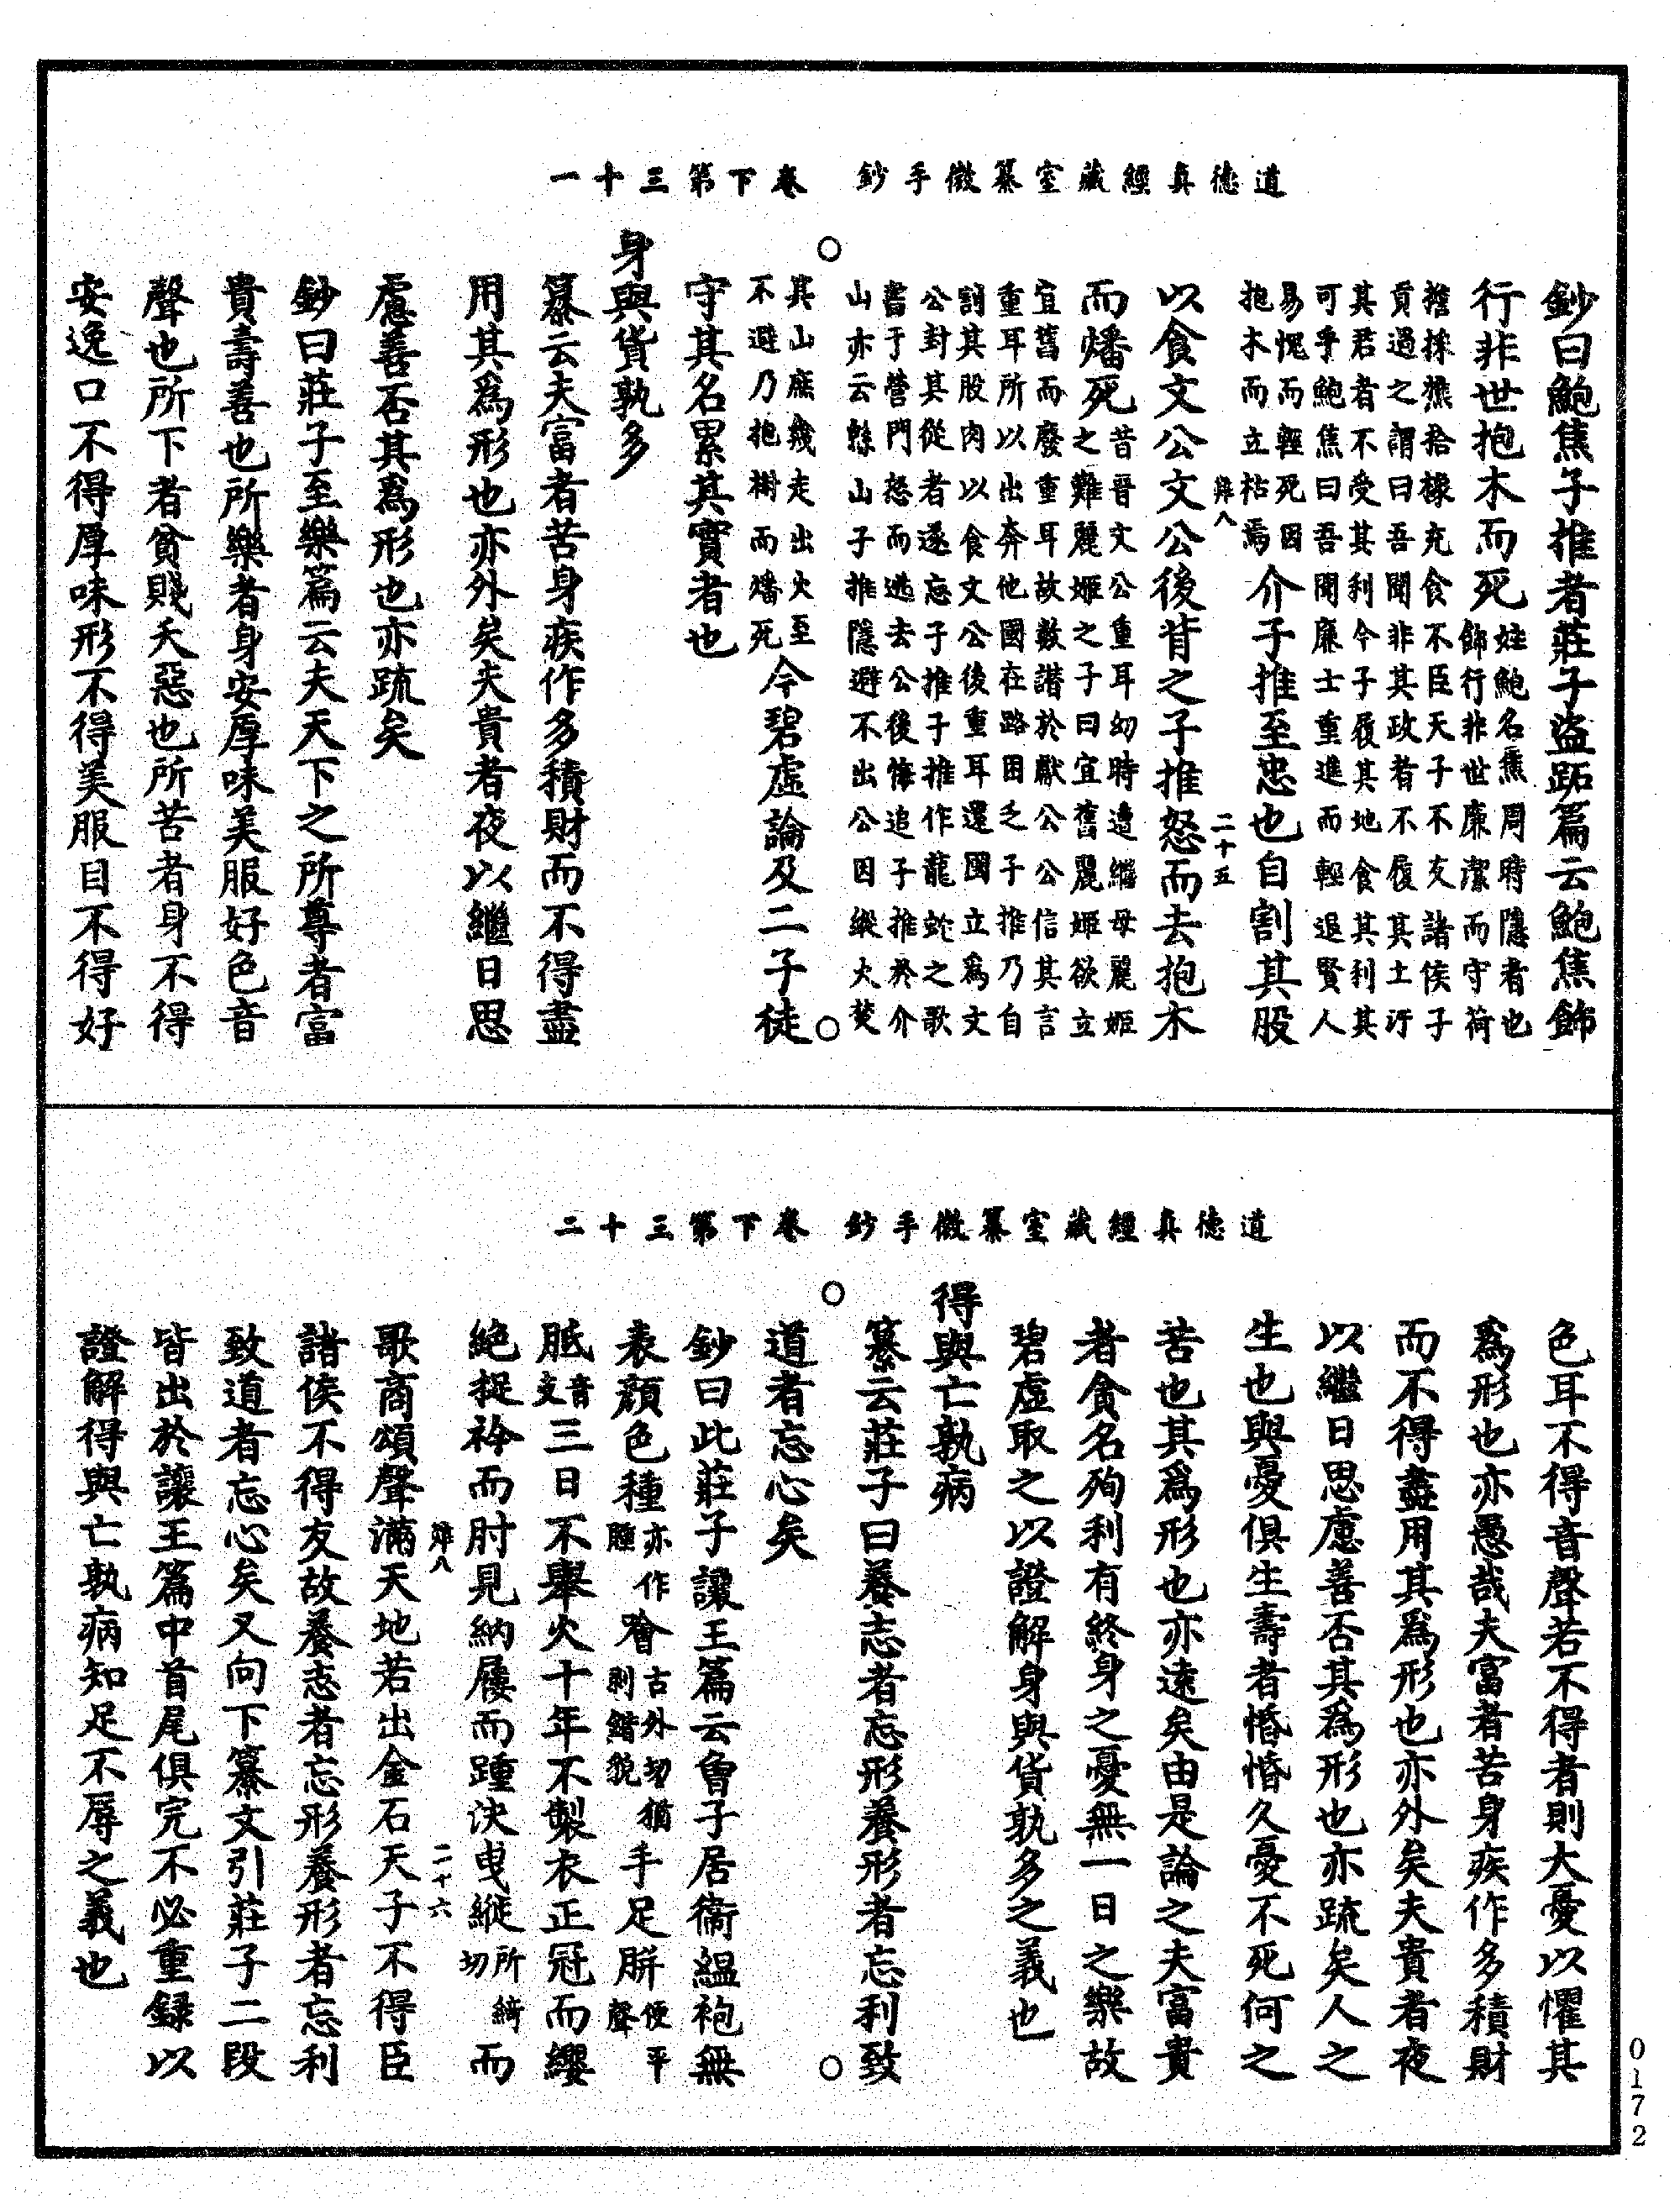 道德真經藏室纂微手鈔　卷下第三十一
鈔曰鮑焦子推者莊子盜跖篇云鮑焦飾
行非世抱木而死姓鮑名焦周時隱者也
飾行非世廉潔而守荷
擔採樵拾橡充食不臣天子不友諸侯子
貢過之謂曰吾聞非其政者不履其土汙
其君者不受其利今子履其地食其利其
可乎鮑焦曰吾聞廉士重進而輕退賢人
易愧而輕死因
抱木而立枯焉介子推至忠也自割其股
難八　二十五
以食文公文公後背之子推怒而去抱木
而燔死昔晉文公重耳幼時遭繼母麗姬
之難麗姬之子曰宜舊麗姬欲立
宜舊而廢重耳故數譖於獻公公信其言
重耳所以出奔他國在路困乏子推乃自
割其股肉以食文公後重耳還國立爲文
公封其從者遂忘子推子推作龍蛇之歌
書于營門怒而逃去公後悔追子推於介
山亦云緜山子推隱避不出公因縱火焚
其山庶幾走出火至
不避乃抱樹而燔死今碧虛論及二子徒
守其名累其實者也
身與貨孰多
纂云夫富者苦身疾作多積財而不得盡
用其爲形也亦外矣夫貴者夜以繼日思
慮善否其爲形也亦疏矣
鈔曰莊子至樂篇云夫天下之所尊者富
貴壽善也所樂者身安厚味美服好色音
聲也所下者貧賤夭惡也所苦者身不得
安逸口不得厚味形不得美服目不得好
道德真經藏室纂微手鈔　卷下第三十二
色耳不得音聲若不得者則大憂以懼其
爲形也亦愚哉夫富者苦身疾作多積財
而不得盡用其爲形也亦外矣夫貴者夜
以繼日思慮善否其爲形也亦疏矣人之
生也與憂俱生壽者惛惛久憂不死何之
苦也其爲形也亦遠矣由是論之夫富貴
者貪名殉利有終身之憂無一日之樂故
碧虛取之以證解身與貨孰多之義也
得與亡孰病
纂云莊子曰養志者忘形養形者忘利致
道者忘心矣
鈔曰此莊子讓王篇云曾子居衛縕袍無
表顏色種亦作腫噲古外切猶剝錯貌手足胼便平聲
胝音支三日不舉火十年不製衣正冠而纓
絕捉衿而肘見納屨而踵決曳縰所綺切而
難八　二十六
歌商頌聲滿天地若出金石天子不得臣
諸侯不得友故養志者忘形養形者忘利
致道者忘心矣又向下纂文引莊子二段
皆出於讓王篇中首尾俱完不必重錄以
證解得與亡孰病知足不辱之義也
0172